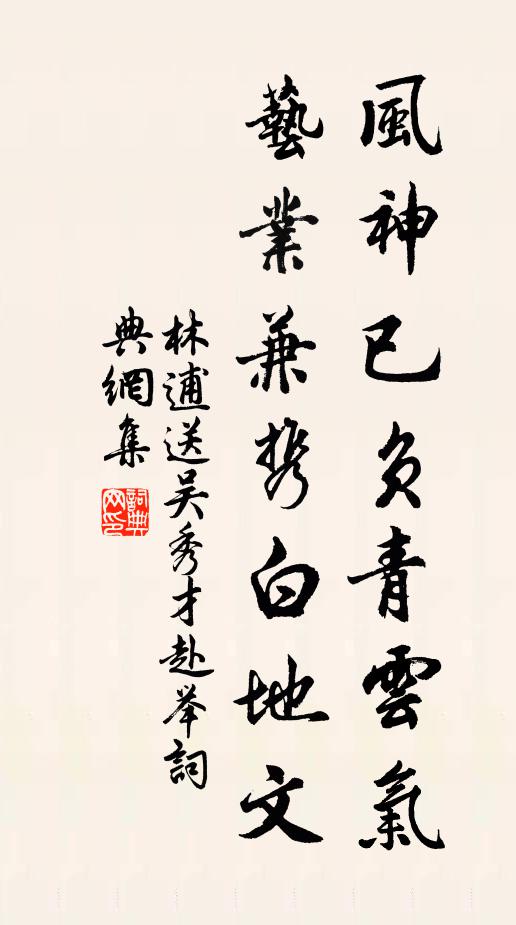 風神已负青雲氣
藝業兼携白地文
林逋送吴秀才赴举詞
典網集
詞典网印